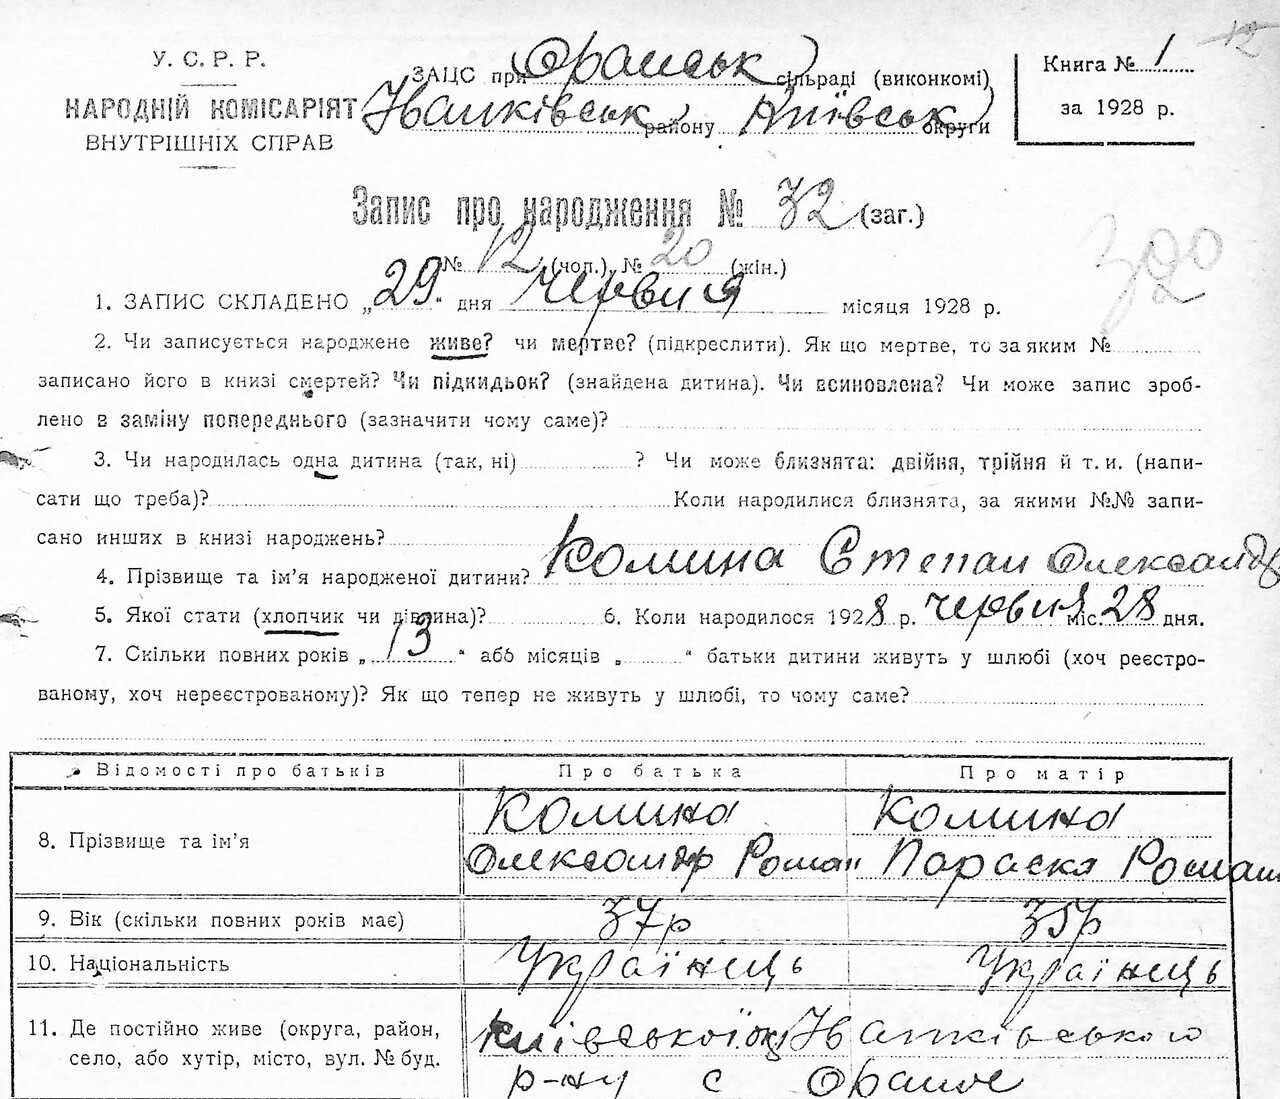 12
У. С. Р. Р.
НАРОДНІЙ КОМІСАРІЯТ
ВНУТРІШНІХ СПРАВ
ЗАЦС при Оранськ сільраді (виконкомі)
Іванківськ району Київськ округи
Книга № 1
за 1928 р.
Запис про народження № 32 (заг.)
№ 12 (чол.), № 20 (жін.)
1. ЗАПИС СКЛАДЕНО „29“ дня червня місяця 1928 р.
2. Чи записується народжене живе? чи мертве? (підкреслити). Як що мертве, то за яким №
записано його в книзі смертей? Чи підкидьок? (знайдена дитина). Чи всиновлена? Чи може запис зроб-
лено в заміну попереднього (зазначити чому саме)?
3. Чи народилась одна дитина (так, ні) ? Чи може близнята: двійня, трійня й т. и. (напи-
сати що треба)? Коли народилися близнята, за якими №№ запи-
сано инших в книзі народжень?
4. Прізвище та ім'я народженої дитини? Комина Степан Олександ
5. Якої стати (хлопчик чи дівчина)? 6. Коли народилося 1928 р. червня міс. 28 дня.
7. Скільки повних років „13“ або місяців „ “ батьки дитини живуть у шлюбі (хоч реєстро-
ваному, хоч нереєстрованому)? Як що тепер не живуть у шлюбі, то чому саме?
Відомості про батьків Про батька Про матір
8. Прізвище та ім'я Комина Комина
Олександр Роман Параска Роман
9. Вік (скільки повних років має) 37р 35р
10. Національність Українець Українець
11. Де постійно живе (округа, район, Київської окр Іванківського
село, або хутір, місто, вул. № буд. р-ну с Оране